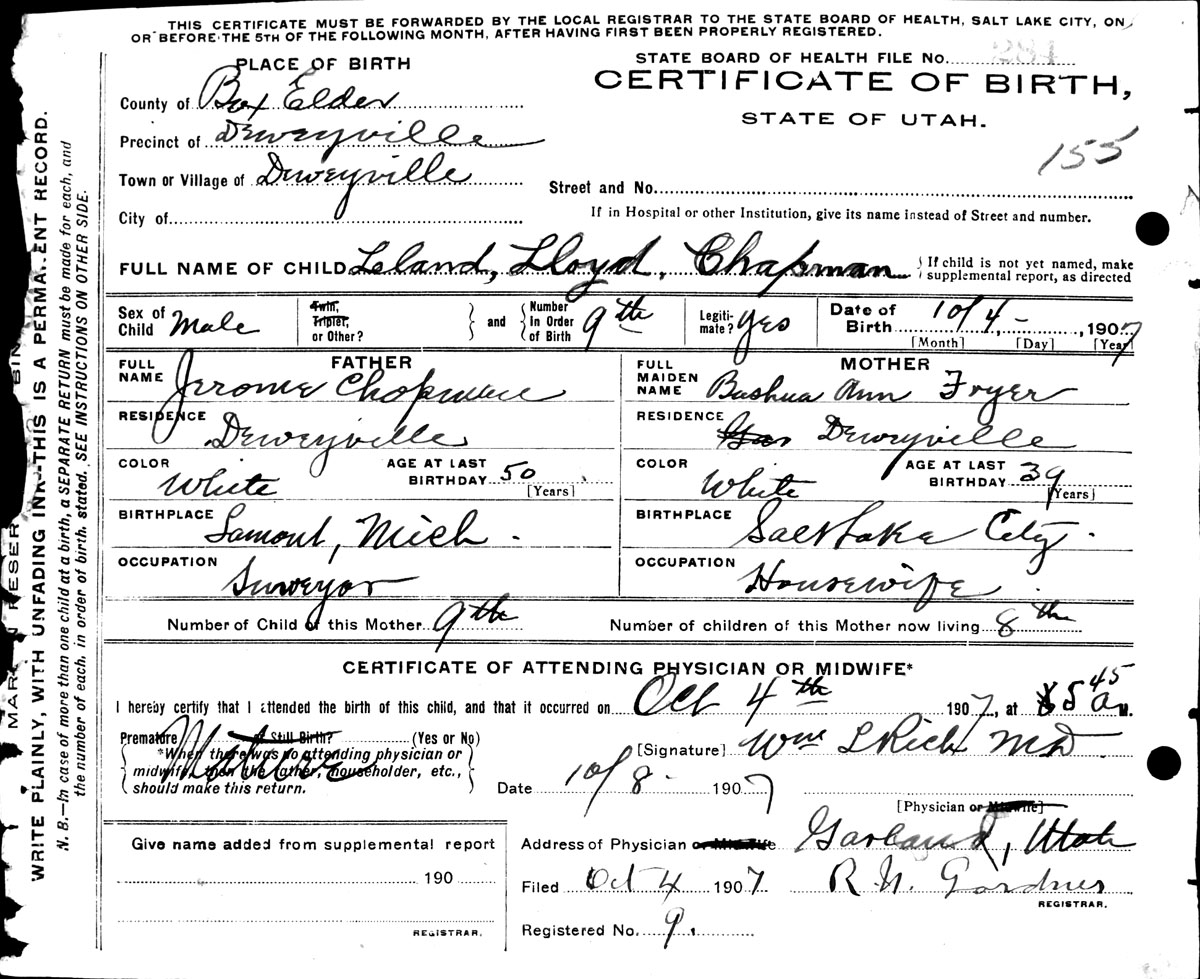 THIS CERTIFICATE MUST BE FORWARDED BY THE LOCAL REGISTRAR TO THE STATE BOARD OF HEALTH, SALT LAKE CITY, ON
OR BEFORE THE 5TH OF THE FOLLOWING MONTH, AFTER HAVING FIRST BEEN PROPERLY REGISTERED.
PLACE OF BIRTH
STATE BOARD OF HEALTH FILE No.
CERTIFICATE OF BIRTH,
STATE OF UTAH.
155
County of Box Elder
Precinct of Deweyville
Town or Village of Deweyville
Street and No.
City of
If in Hospital or other Institution, give its name instead of Street and number.
FULL NAME OF CHILD Leland, Lloyd, Chapman { If child is not yet named, make
supplemental report, as directed
Sex of Child Male
Twin, Triplet, or Other? } and { Number In Order of Birth 9th
Legitimate? Yes
Date of Birth 10/4- , 1907
[Month] [Day] [Year]
FATHER
FULL NAME Jerome Chapman
RESIDENCE Deweyville
COLOR White AGE AT LAST BIRTHDAY 50 [Years]
BIRTHPLACE Lamont, Mich.
OCCUPATION Surveyor
MOTHER
FULL MAIDEN NAME Bashua Ann Fryer
RESIDENCE Deweyville
COLOR White AGE AT LAST BIRTHDAY 39 [Years]
BIRTHPLACE Salt Lake City.
OCCUPATION Housewife.
Number of Child of this Mother 9th Number of children of this Mother now living 8th
CERTIFICATE OF ATTENDING PHYSICIAN OR MIDWIFE*
I hereby certify that I attended the birth of this child, and that it occurred on Oct 4th 1907, at 5 45 a M.
Premature or Still Birth? (Yes or No)
Mature
{ *When there was no attending physician or
midwife, then the father, householder, etc.,
should make this return. }
[Signature] Wm L Rich MD
Date 10/8 1907
[Physician or Midwife]
Address of Physician or Midwife Garland, Utah
Give name added from supplemental report
190
REGISTRAR.
Filed Oct 4 1907 R. N. Gardner
REGISTRAR.
Registered No. 9.
WRITE PLAINLY, WITH UNFADING INK--THIS IS A PERMA.ENT RECORD.
N. B.—In case of more than one child at a birth, a SEPARATE RETURN must be made for each, and
the number of each, in order of birth, stated. SEE INSTRUCTIONS ON OTHER SIDE.